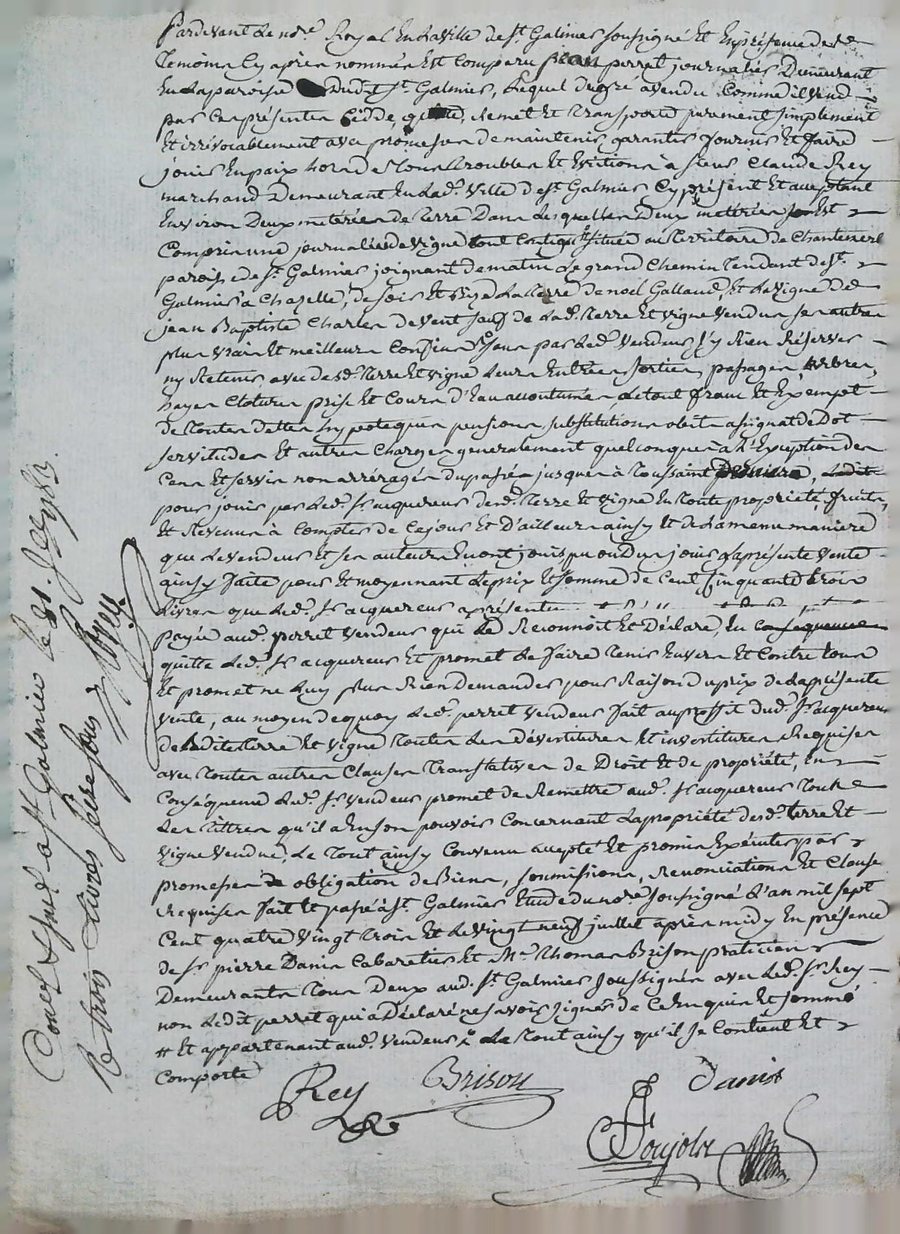 Pardevant le no.re Royal en la ville de s.t Galmier soussigné et en présence des
Temoins cy après nommés est comparu jean perret journalier Demeurant
En la paroisse Dudit s.t Galmier, Lequel de gré a vendu Comme il vend
par ces présentes Cedde, quitte, Remet et transporte purement simplement
Et irrévocablement avec promesse de maintenir, garantir fournir et faire
jouir En paix hors de tous troubles et Evitions à sieur Claude Rey
marchand Demeurant En lad.e Ville de s.t Galmier Cy présent Et acceptant
Environ Deux metérées de Terre Dans Lesquelles Deux metérées Est
Comprise une journalée de vigne tout Contigu située au Territoire de Chantemerl
paroisse de s.t Galmier joignant de matin Le grand Chemin Tendant de s.t
Galmier à Chazelle, de soir Et bize La Terre de noël Galland, Et La vigne De
jean Baptiste Charles de vent sauf de lad.e Terre Et vigne vendue ses autres
plus vrais Et meilleurs Confins sans par led.t Vendeur s'y Rien Réserver
ny Retenir avec desd.t Terre Et vigne leurs Entrées sorties, passages, Arbres,
hayes Clotures prise Et Cours d'Eau accoutumés de tout franc Et Exempt
de toutes dettes hypoteques pensions, substitutions obit assignat de Dot
servitudes Et autres Charges generalement quelconques à l'Exception des
Cens Et servis non arréragés du passé jusques à Toussaint
pour jouir par led.t s.r acquereur desd.t Terre Et vigne En toute propriété, fruits,
Et Revenus à Compter de Ce jour Et D'ailleurs ainsy Et de la meme maniere
que le vendeur Et ses auteurs En ont jouis pu ou Du jouir La présente vente
ainsy faite pour Et moyennant Le prix Et somme de Cent Cinquante trois
Livres que led.t s.r acquereur a présentement
payée aud.t perret vendeur qui Le Reconnoit Et Déclare, En Conséquence
quitte led.t s.r acquereur Et promet Le faire tenir Envers Et Contre tous
Et promet ne luy plus Rien Demander pour Raison du prix de la présente
vente, au moyen de quoy led.t perret vendeur fait au proffit dud.t s.r acquereur
de laditte terre Et vigne toutes les dévestitures Et investitures Requises
avec toutes autres Clauses Translatives de Droit Et de propriété, En
Conséquence led.t s.r vendeur promet de Remettre aud.t s.r acquereur tous
Les tittres qu'il a En son pouvoir Concernant La propriété desd.t terre Et
Vigne vendue, Le tout ainsy Convenu accepté Et promis Exécuter par
promesses obligation de Biens, soumissions, Renonciations Et Clauses
Requises fait Et passé à s.t Galmier Etude du no.re soussigné L'an mil sept
Cent quatre vingt trois Et Le vingt neuf juillet après midy En présence
de s.r pierre Danis Cabaretier Et M.e Thomas Brison praticien
Demeurants tous Deux aud.t s.t Galmier soussignés avec led.t s.r Rey
non ledit perret qui a Déclaré ne savoir signer de Ce Enquis Et sommé
# Et appartenant aud.t Vendeur Le tout ainsy qu'il se Contient Et
Comporte
Rey
Brison
Danis
Poujolx
Conté Et Scel a s.t Galmier le
Re trois livres seize sous